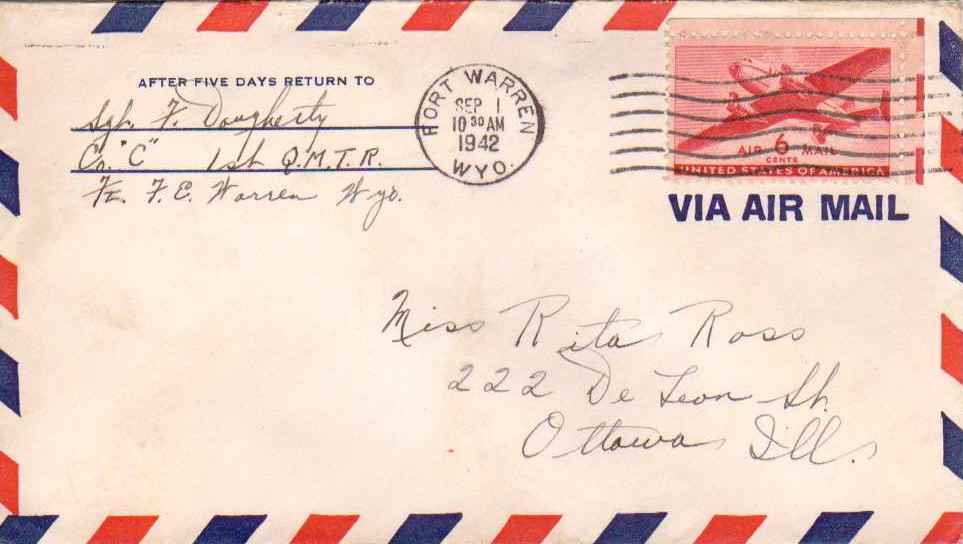 AFTER FIVE DAYS RETURN TO
Sgt. F. Dougherty
Co. "C" 1st Q.M.T.R.
Ft. F. E. Warren Wyo.
FORT WARREN
SEP 1
10 30 AM
1942
WYO.
AIR 6 MAIL
CENTS
UNITED STATES OF AMERICA
VIA AIR MAIL
Miss Rita Ross
222 De Leon St.
Ottawa Ill.